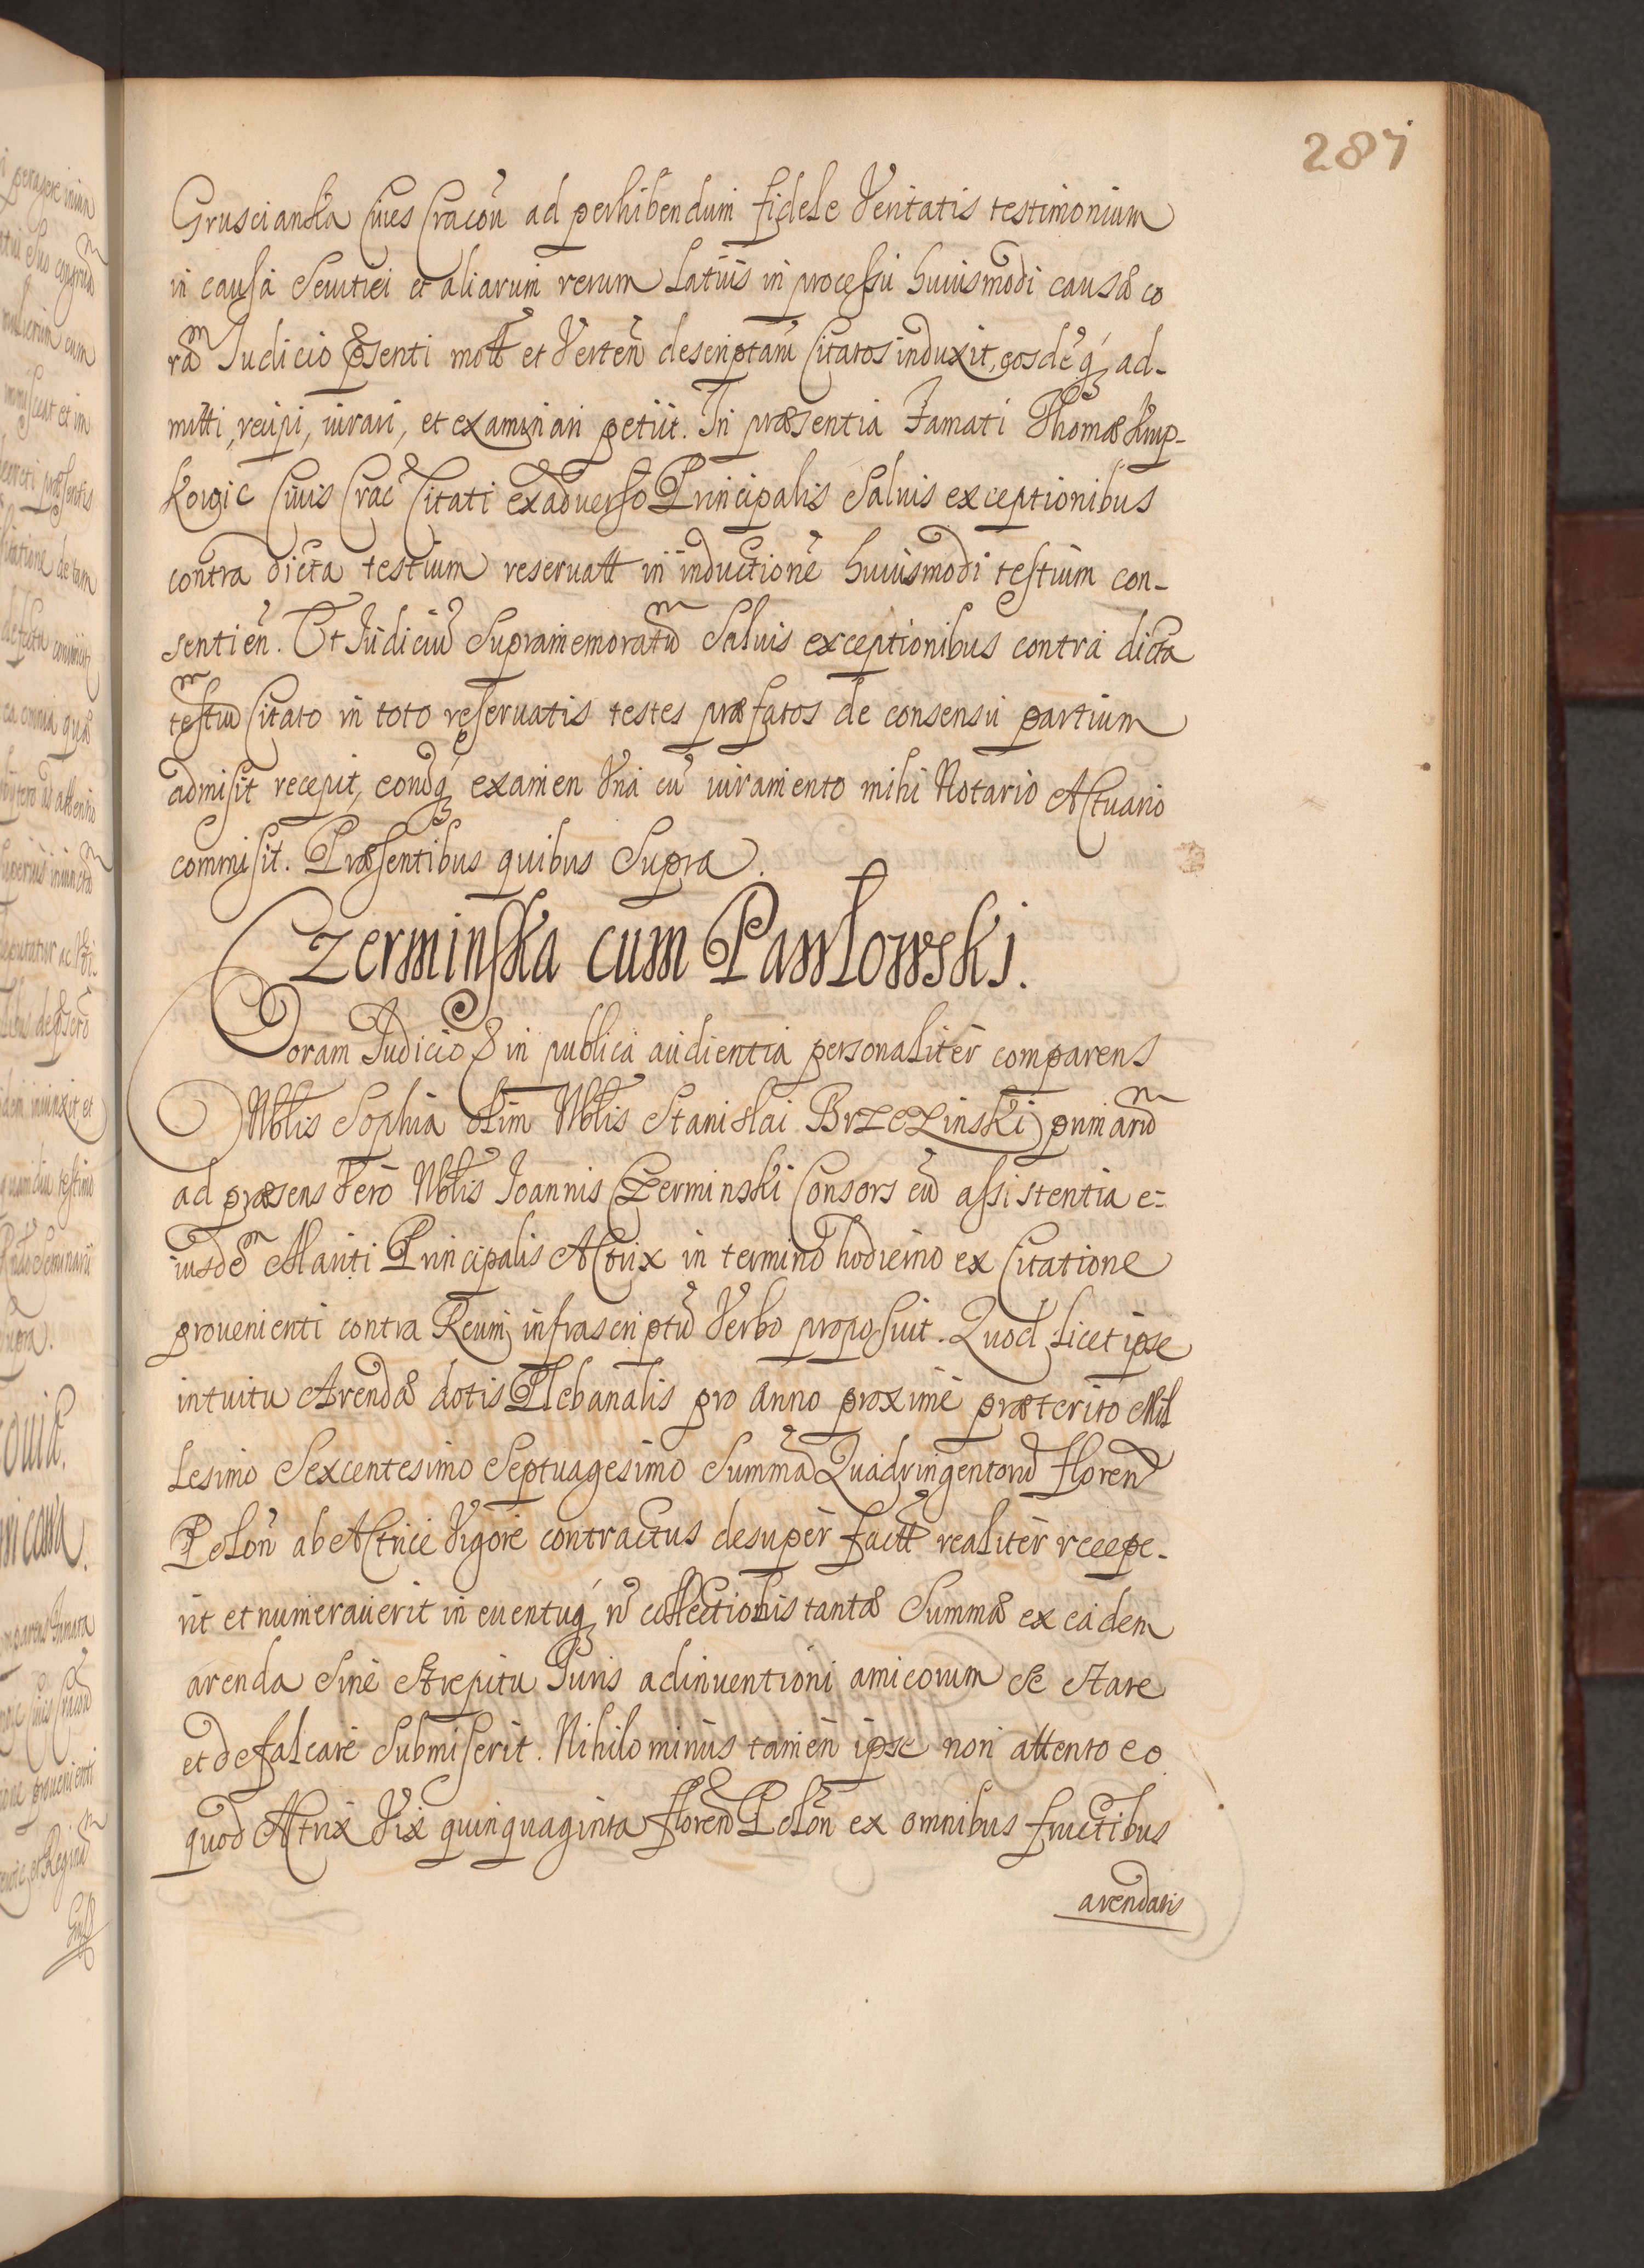 287
Gruscianska Cives Cracoũ ad perhibendum fidele Veritatis testimonium
in causa Sevitiei et aliarum rerum latius in processu huiusmodi causæ co
ram Iudicio præsenti mott et Verteñ descriptam Citatos induxit, eosdeq́ ad-
mitti, recipi, iurari, et examinari petiit. In præsentia Famati Thomæ Krup-
kowic Civis Crac̃ Citati ex adverso Principalis Salvis exceptionibus
contra dicta testium reservatt in inductionẽ huiusmodi testium con-
sentieñ. Et Iudiciũ Supramemoratum Salvis exceptionibus contra dicta
testium Citato in toto reservatis testes præfatos de consensu partium
admisit recepit, eorũq́ examen Vna cũ iuramento mihi Notario Actuario
commisit. Præsentibus quibus Supra.
Czerminska cum Pawłowski.
Coram Iudicio P in publica audientia personaliter comparens
Nbłis Sophia olim Nbłis Stanislai Brzezinski primarum
ad præsens Vero Nbłis Ioannis Czerminski Consors cũ assistentia e=
iusdem Mariti Principalis Actrix in termino hodierno ex Citatione
provenienti contra Reum infrascriptũ Verbo proposuit. Quod licet ipse
intuitu Arendæ dotis Plebanalis pro anno proxime præterito Mil
lesimo Sexcentesimo Septuagesimo Summã Quadringentorũ Floreñ
Poloñ ab Actrice Vigore contractus desuper factt realiter recepe-
rit et numeraverit in eventuq́ ñ collectionis tantæ Summæ ex eadem
arenda Sine Strepitu Iuris adinventioni amicorum Se Stare
et defalcare Submiserit. Nihilominus tamen ipse non attento eo
quod Actrix Vix quinquaginta floreñ Poloñ ex omnibus fructibus
arendatis